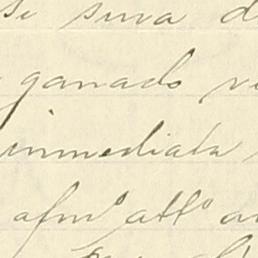 se sirva d
ganado v
inmediata
afmo atto a